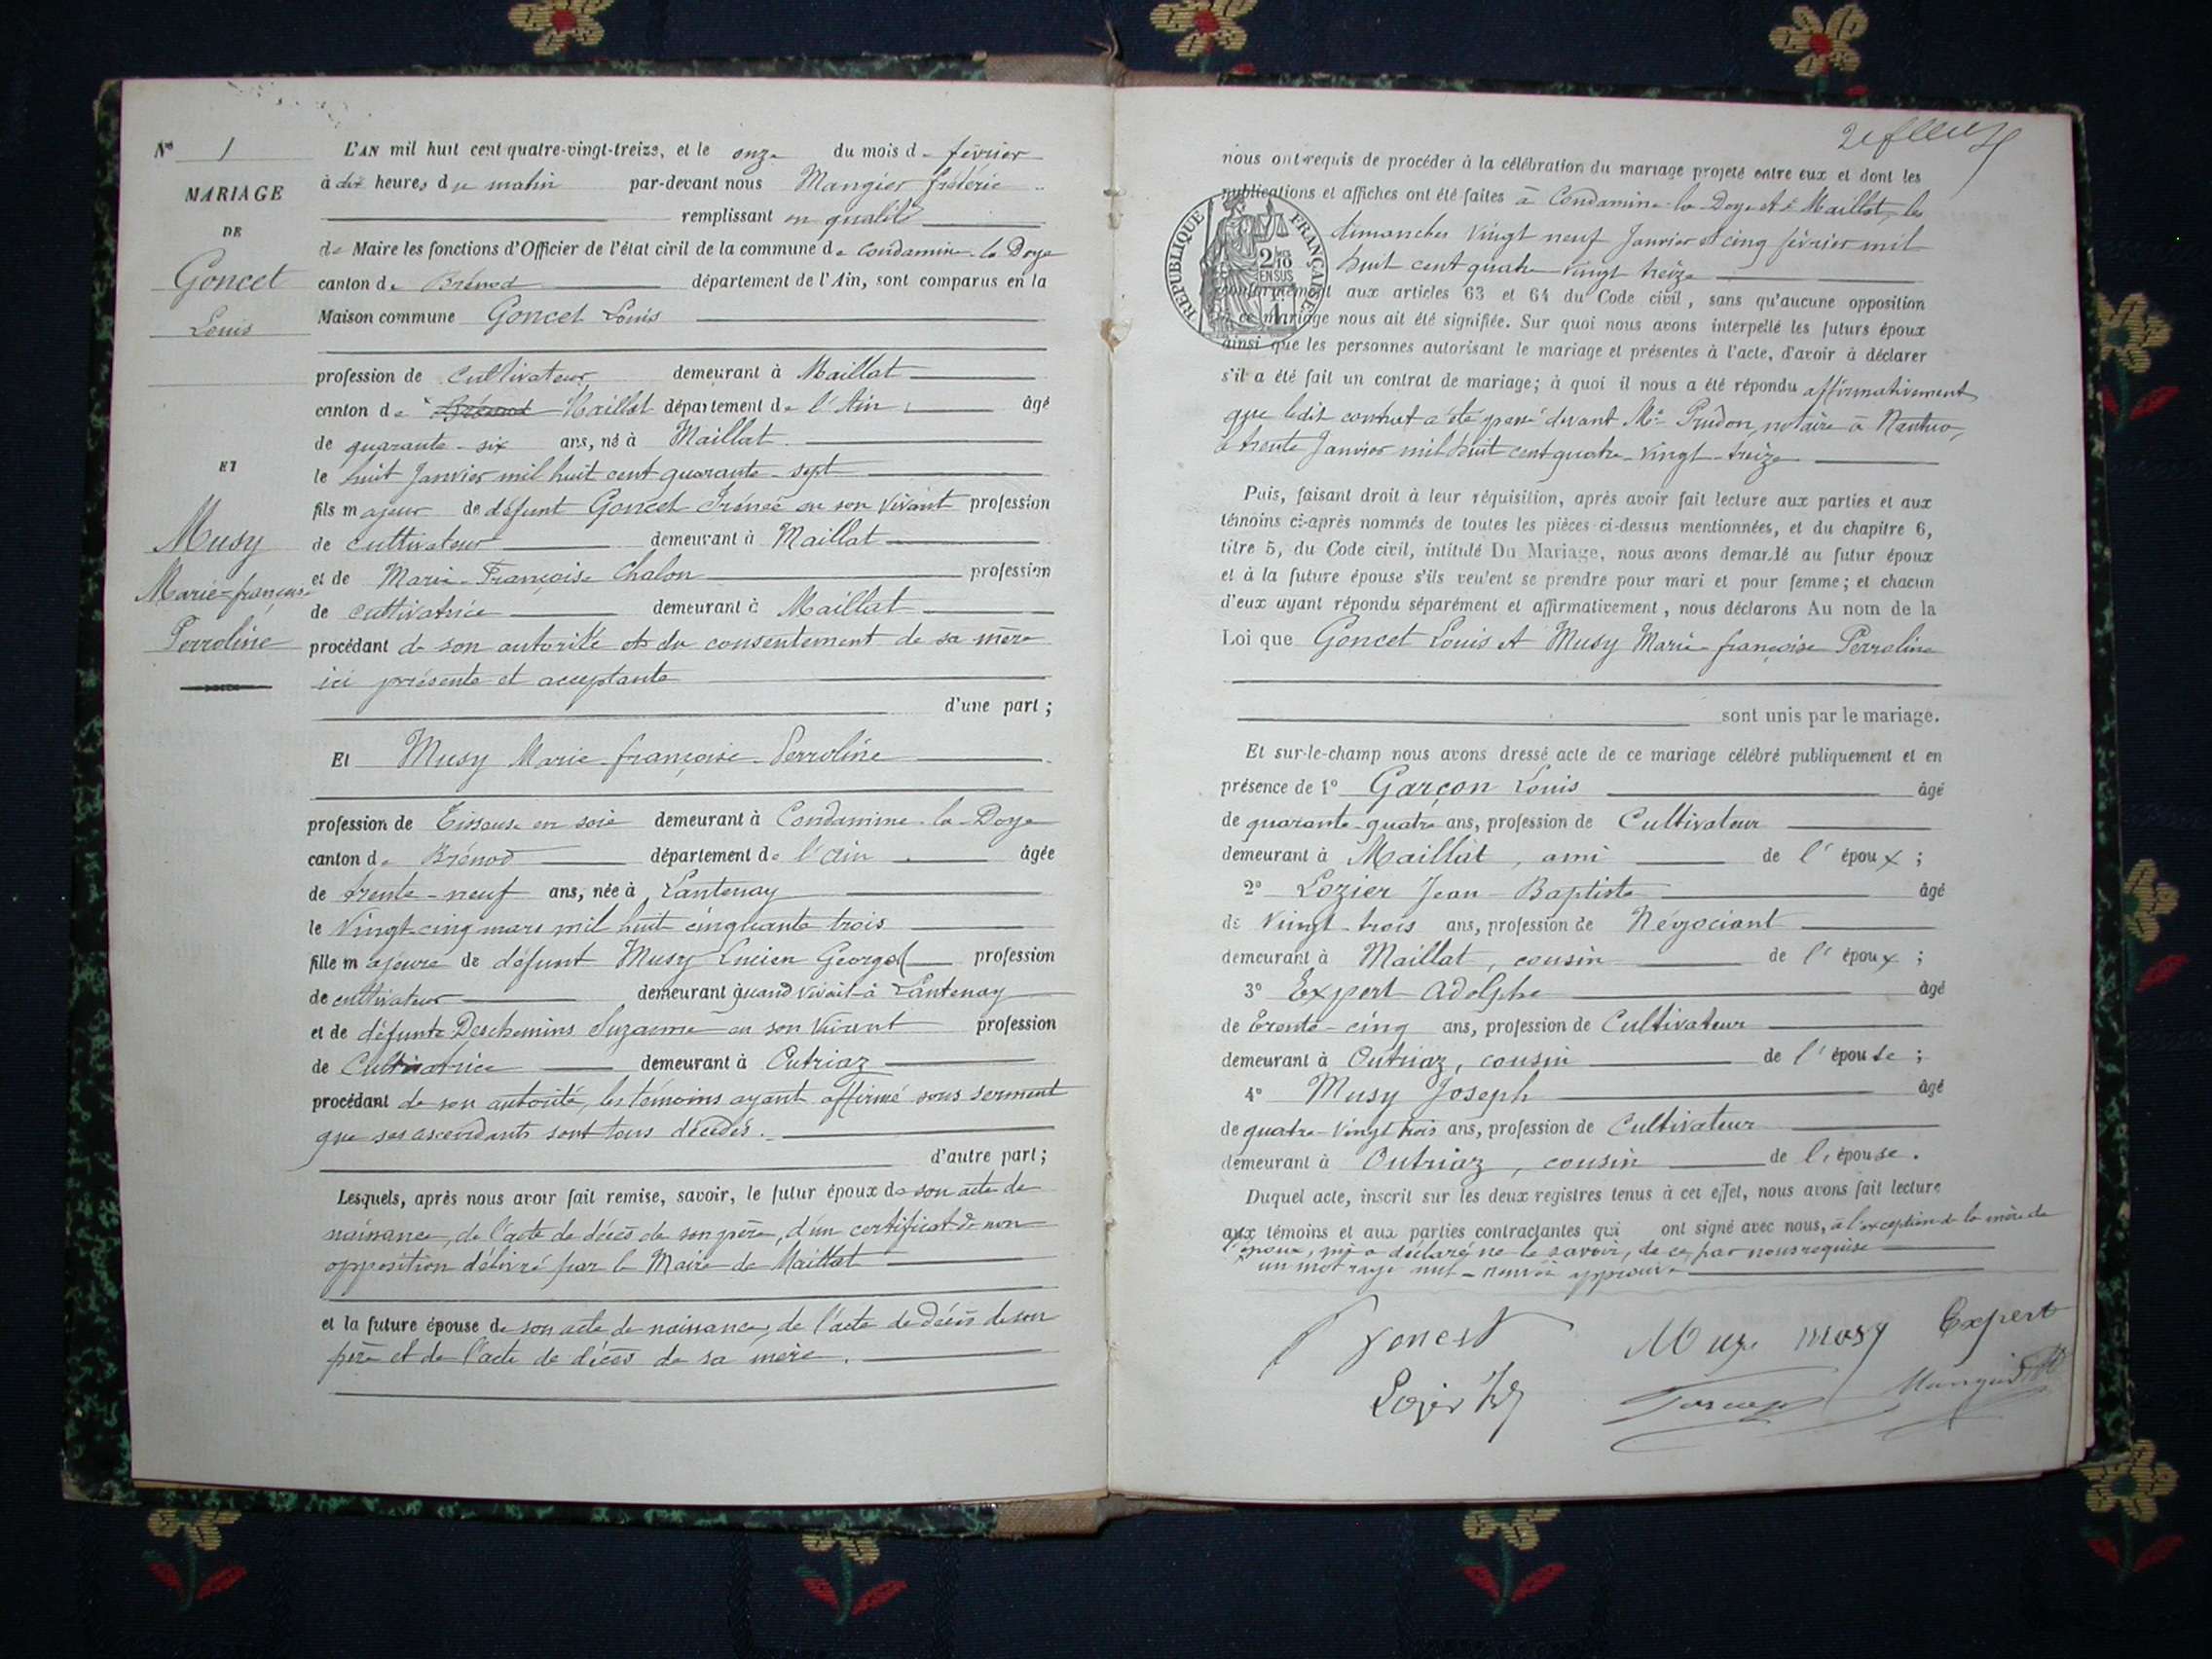 Nº 1
MARIAGE
DE
Goncet
Louis
ET
Musy
Marie-françoise
Perroline
L'AN mil huit cent quatre-vingt-treize, et le onze du mois de février
à dix heures du matin par-devant nous Mangier frédéric
remplissant en qualité
de Maire les fonctions d'Officier de l'état civil de la commune de Condamine-la-Doye
canton de Brénod département de l'Ain, sont comparus en la
Maison commune Goncet Louis
profession de Cultivateur demeurant à Maillat
canton de Brénod Maillat département de l'Ain âgé
de quarante-six ans, né à Maillat
le huit Janvier mil huit cent quarante-sept
fils majeur de défunt Goncet Irénée en son vivant profession
de cultivateur demeurant à Maillat
et de Marie-Françoise Chalon profession
de cultivatrice demeurant à Maillat
procédant de son autorité et du consentement de sa mère
ici présente et acceptante
d'une part;
Et Musy Marie-françoise-Perroline
profession de Tisseuse en soie demeurant à Condamine-la-Doye
canton de Brénod département de l'Ain âgée
de trente-neuf ans, née à Lantenay
le Vingt-cinq mars mil huit cinquante trois
fille majeure de défunt Musy Lucien George profession
de cultivateur demeurant quand vivait à Lantenay
et de défunte Deschemins Suzanne en son vivant profession
de Cultivatrice demeurant à Outriaz
procédant de son autorité, les témoins ayant affirmé sous serment
que ses ascendants sont tous décédés.
d'autre part;
Lesquels, après nous avoir fait remise, savoir, le futur époux de son acte de
naissance, de l'acte de décès de son père, d'un certificat de non
opposition délivré par le Maire de Maillat
et la future épouse de son acte de naissance, de l'acte de décès de son
père et de l'acte de décès de sa mère.
nous ont requis de procéder à la célébration du mariage projeté entre eux et dont les
publications et affiches ont été faites à Condamine-la-Doye et à Maillat, les
dimanches vingt neuf Janvier et cinq février mil
huit cent quatre-vingt treize
RÉPUBLIQUE FRANÇAISE
2/10
EN SUS
conformément aux articles 63 et 64 du Code civil, sans qu'aucune opposition
à ce mariage nous ait été signifiée. Sur quoi nous avons interpellé les futurs époux
ainsi que les personnes autorisant le mariage et présentes à l'acte, d'avoir à déclarer
s'il a été fait un contrat de mariage; à quoi il nous a été répondu affirmativement
que ledit contrat a été passé devant Me Prudon, notaire à Nantua,
le trente Janvier mil huit cent quatre-vingt-treize
Puis, faisant droit à leur réquisition, après avoir fait lecture aux parties et aux
témoins ci-après nommés de toutes les pièces ci-dessus mentionnées, et du chapitre 6,
titre 5, du Code civil, intitulé Du Mariage, nous avons demandé au futur époux
et à la future épouse s'ils veulent se prendre pour mari et pour femme; et chacun
d'eux ayant répondu séparément et affirmativement, nous déclarons Au nom de la
Loi que Goncet Louis et Musy Marie-françoise Perroline
sont unis par le mariage.
Et sur-le-champ nous avons dressé acte de ce mariage célébré publiquement et en
présence de 1º Garçon Louis âgé
de quarante-quatre ans, profession de Cultivateur
demeurant à Maillat, ami de l'époux;
2º Lozier Jean-Baptiste âgé
de Vingt-trois ans, profession de Négociant
demeurant à Maillat, cousin de l'époux;
3º Expert Adolphe âgé
de trente-cinq ans, profession de Cultivateur
demeurant à Outriaz, cousin de l'épouse;
4º Musy Joseph âgé
de quatre-vingt trois ans, profession de Cultivateur
demeurant à Outriaz, cousin de l'épouse.
Duquel acte, inscrit sur les deux registres tenus à cet effet, nous avons fait lecture
aux témoins et aux parties contractantes qui ont signé avec nous, à l'exception de la mère de
l'époux, qui a déclaré ne le savoir, de ce par nous requise
un mot rayé nul - renvoi approuvé
Goncet Musy Musy Expert
Lozier